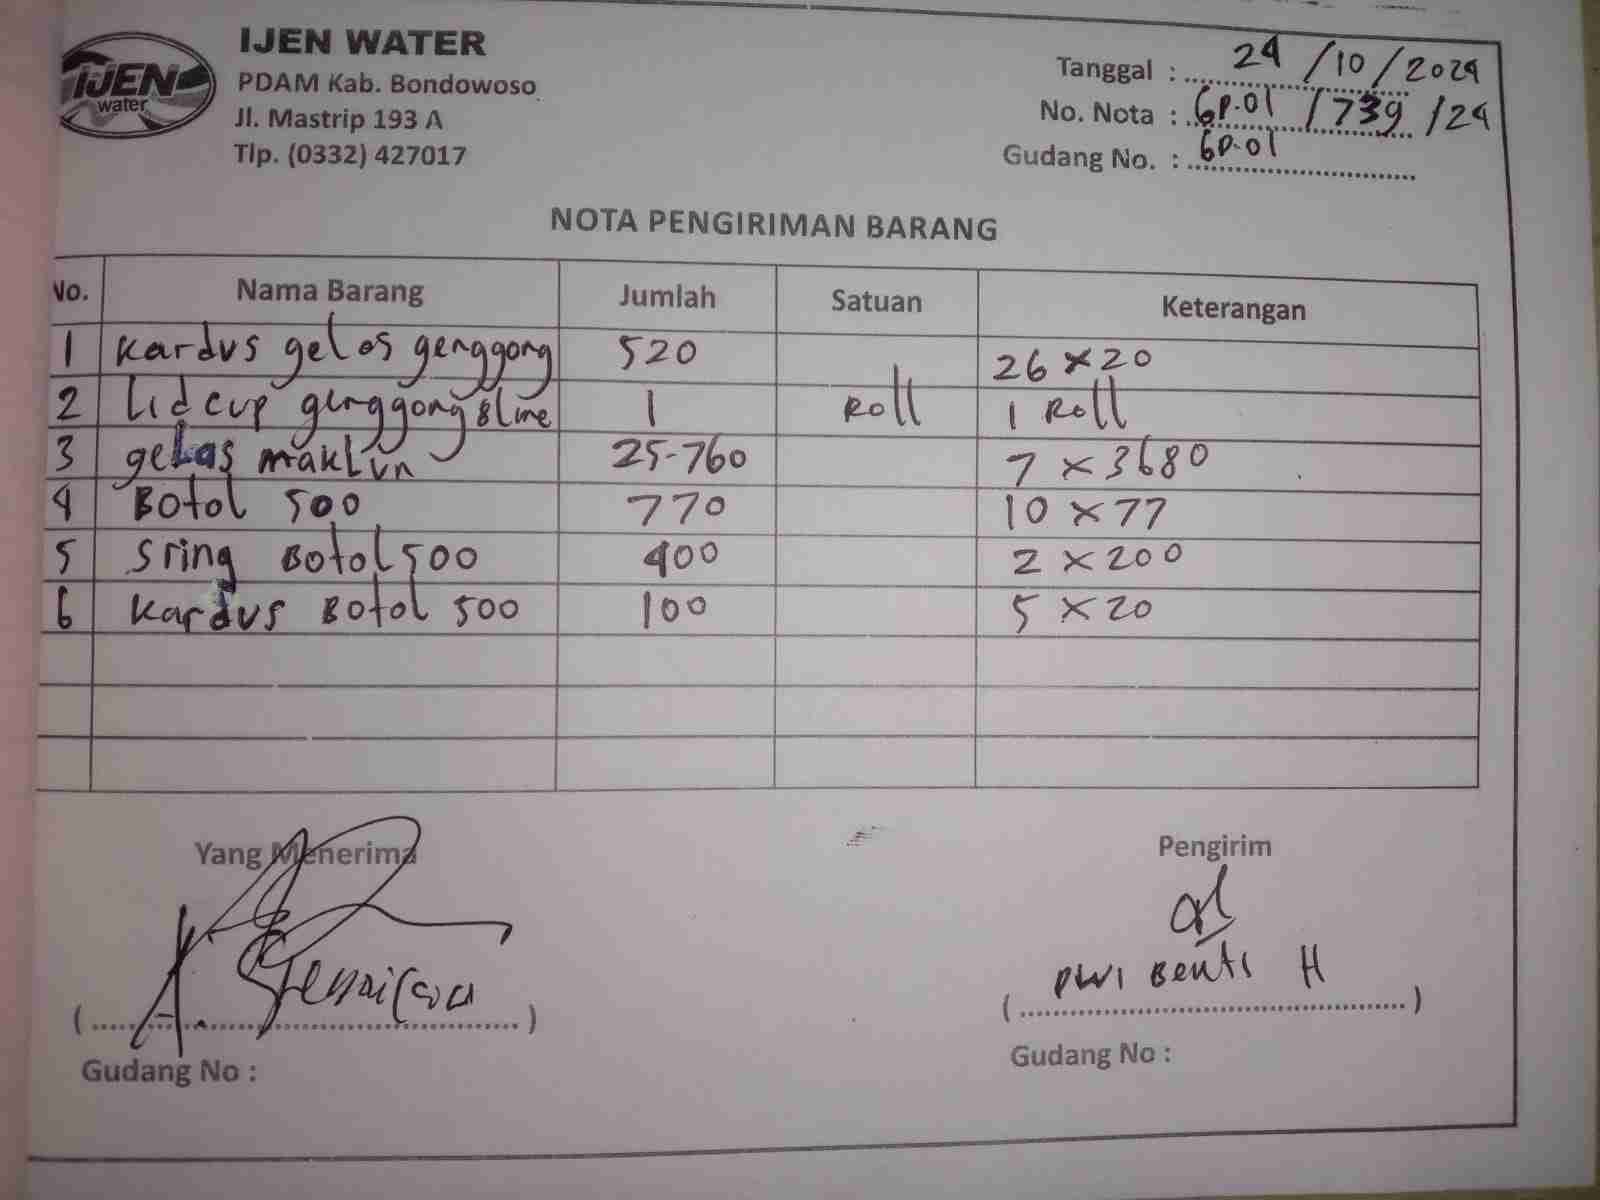 IJEN WATER
IJEN
water
PDAM Kab. Bondowoso
Jl. Mastrip 193 A
Tlp. (0332) 427017
Tanggal : 24 / 10 / 2024
No. Nota : GP.01 / 739 / 24
Gudang No. : GP.01
NOTA PENGIRIMAN BARANG
No. Nama Barang Jumlah Satuan Keterangan
1 Kardus gelas genggong 520 26 x 20
2 Lid cup genggong 8 line 1 Roll 1 Roll
3 gelas maklun 25-760 7 x 3680
4 Botol 500 770 10 x 77
5 Sring Botol 500 400 2 x 200
6 Kardus Botol 500 100 5 x 20
Yang Menerima Pengirim
DWI H
Gudang No : Gudang No :